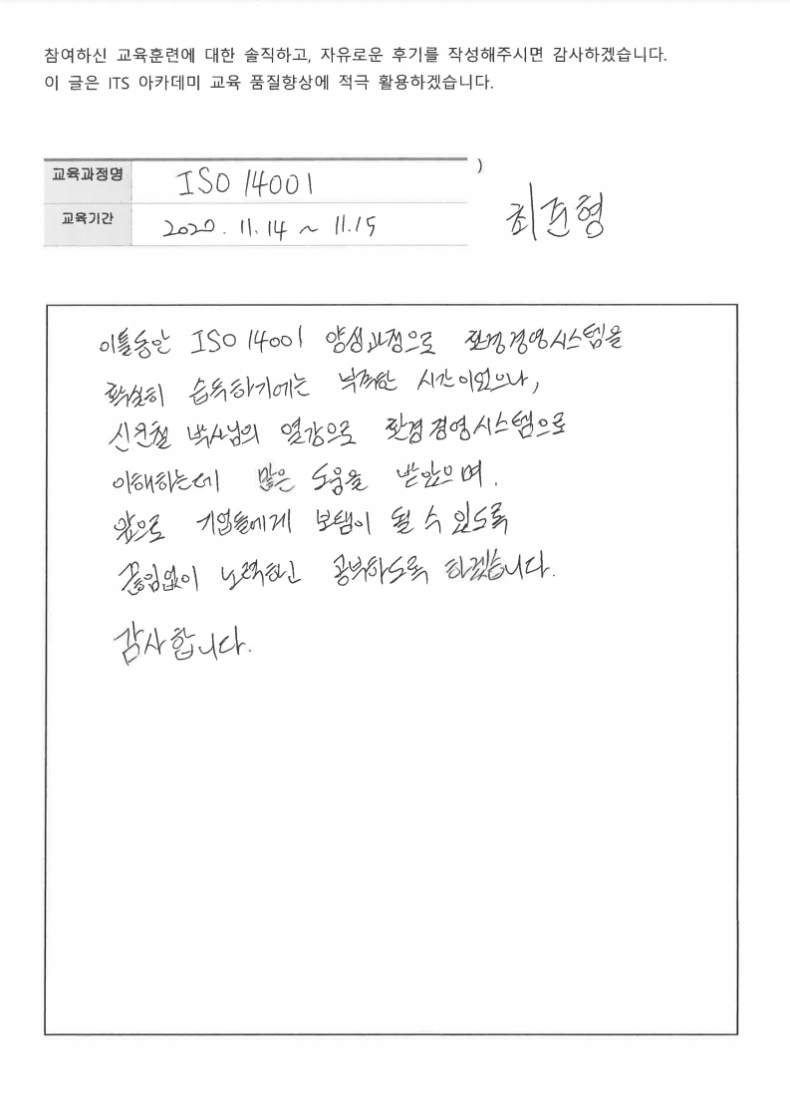 참여하신 교육훈련에 대한 솔직하고, 자유로운 후기를 작성해주시면 감사하겠습니다.
이 글은 ITS 아카데미 교육 품질향상에 적극 활용하겠습니다.
교육과정명 ISO 14001 )
교육기간 2020. 11. 14 ~ 11.15
최준형
이틀동안 ISO 14001 양성과정으로 환경경영시스템을
확실히 습득하기에는 부족한 시간이었으나,
박사님의 열강으로 환경경영시스템으로
이해하는데 많은 도움을 받았으며.
앞으로 기업들에게 보탬이 될 수 있도록
끊임없이 노력하고 공부하도록 하겠습니다.
감사합니다.